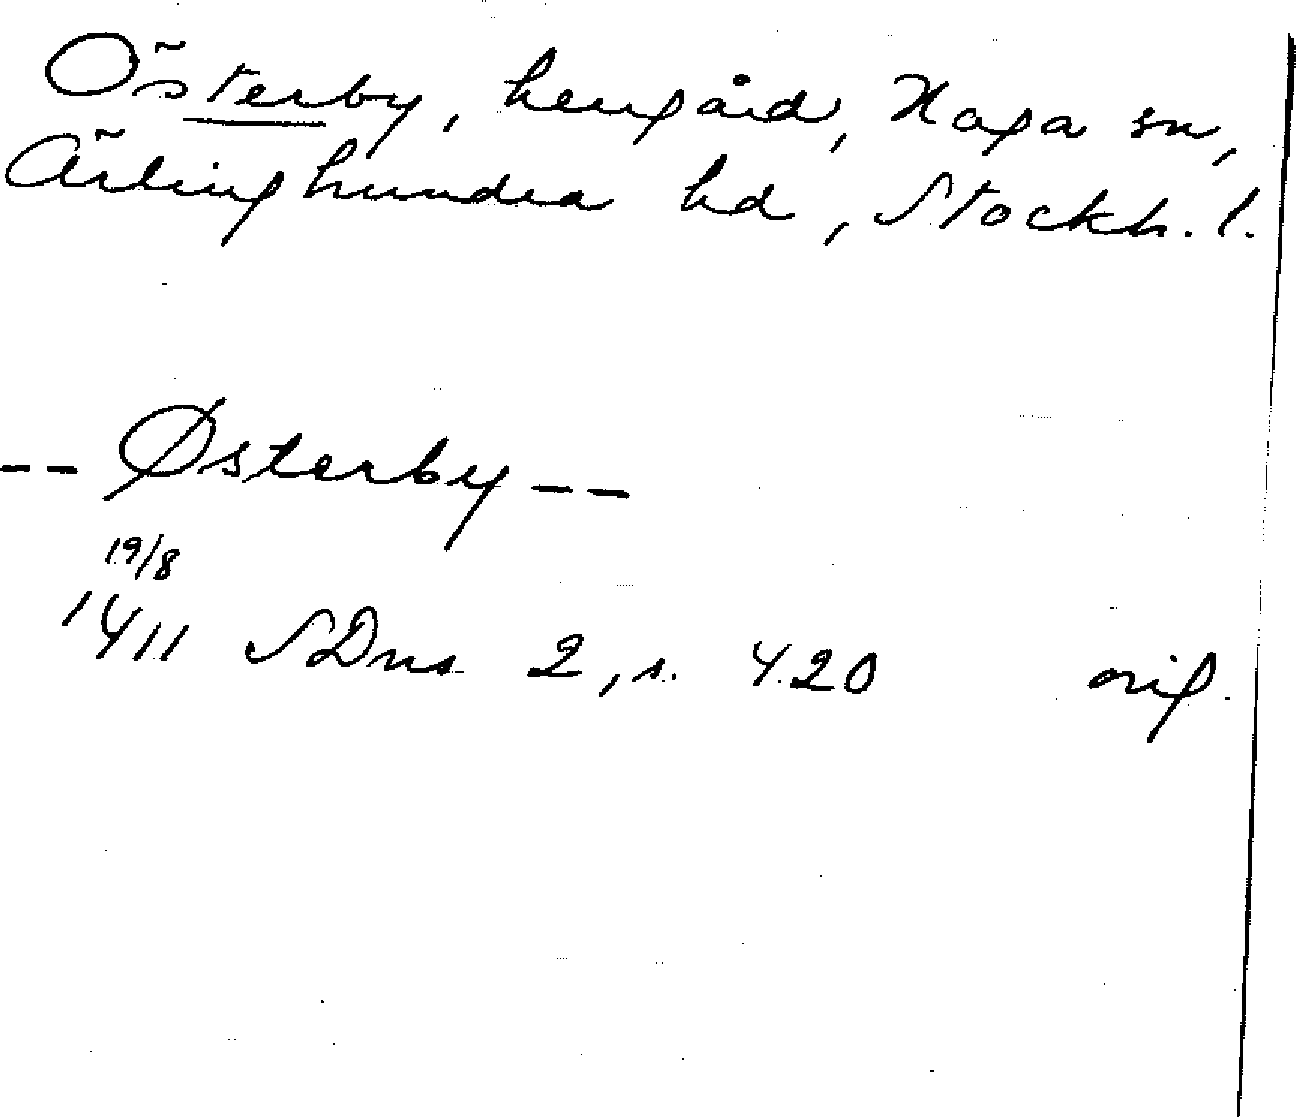 Österby, herrgård, Haga sn,
Ärlinghundra hd, Stockh. l.
-- Østerby --
19/8
1411 SDns 2, s. 420 orig.